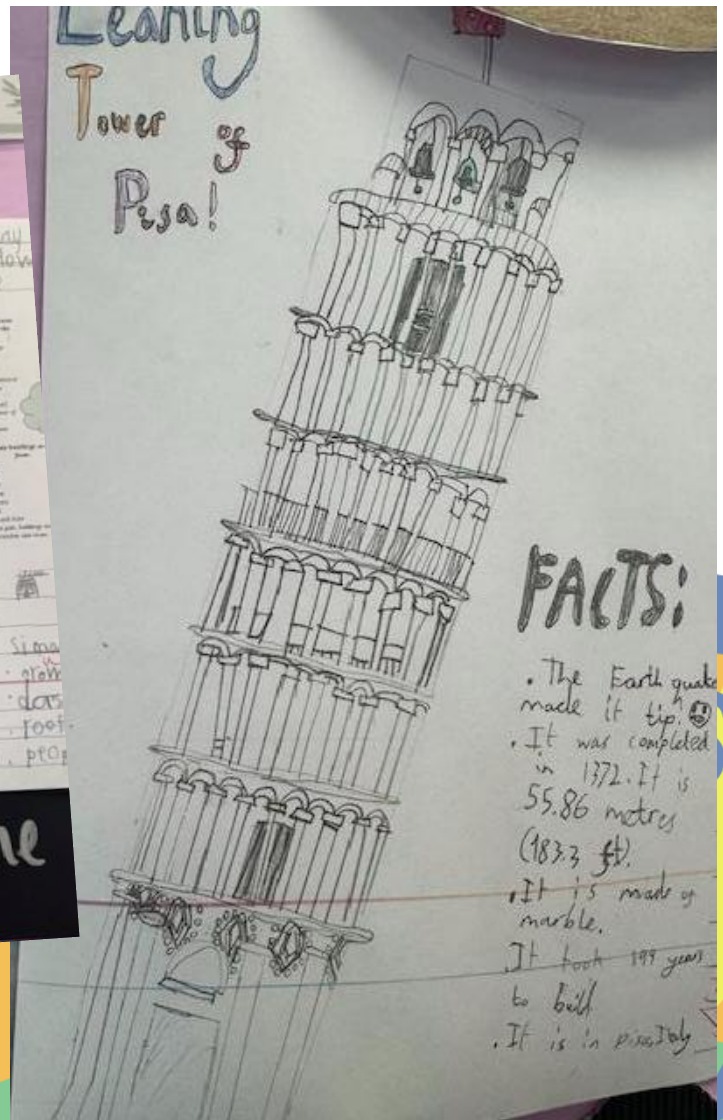 Leaning
Tower of
Pisa!
FACTS:
. The Earth quake
made it tip.
. It was completed
in 1372. It is
55.86 metres
(183.3 ft).
. It is made of
marble.
. It took 199 years
to build
. It is in pisa, Italy